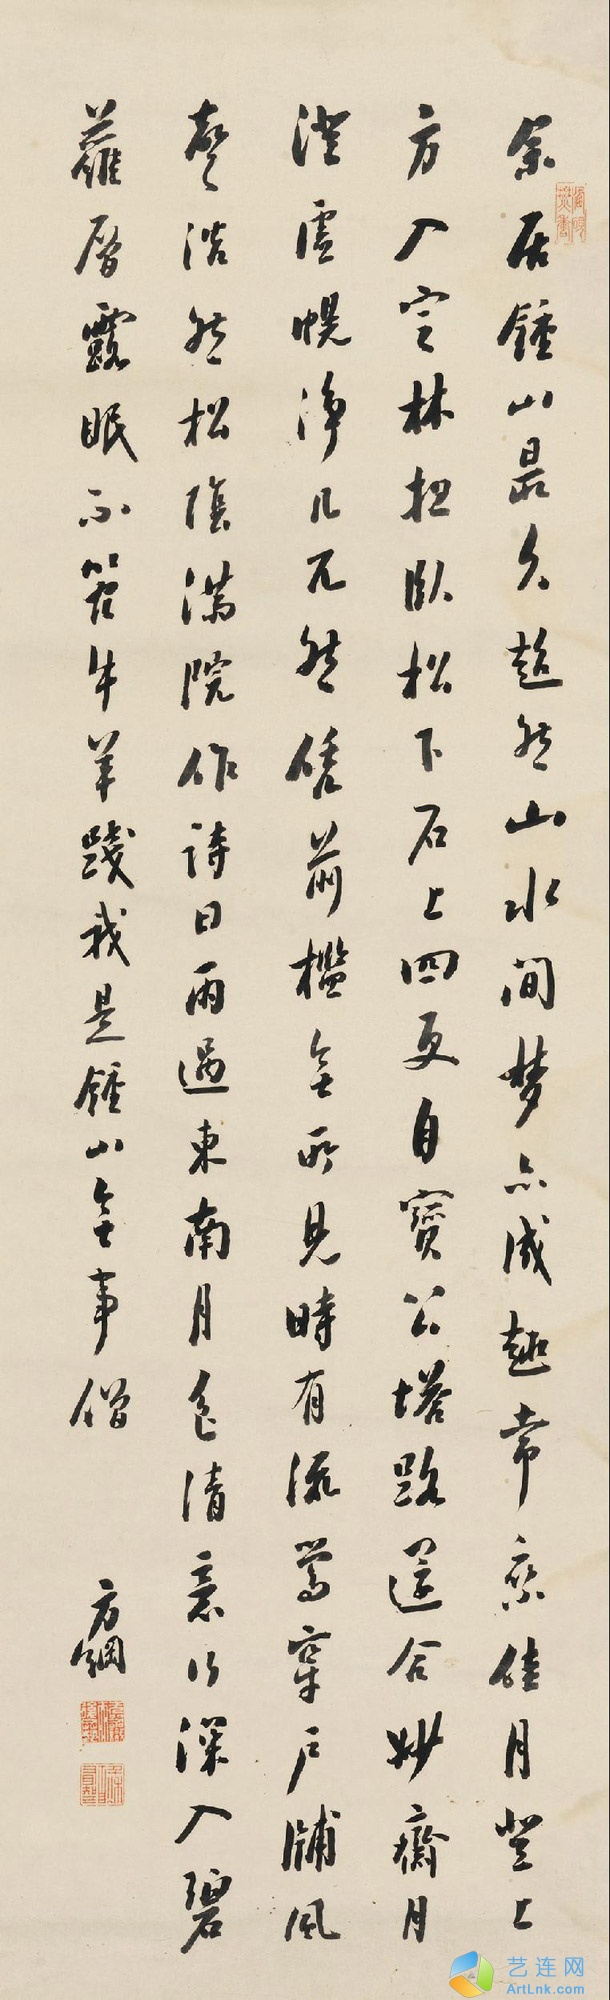 余居鍾山最久超然山水間梦亦成趣常乘佳月登上
方入定林抱臥松下石上四更自寶公塔路還合妙齋月
澄虛幌淨几兀然前檻無所見時有流鶯穿戶牖風
聲浩然松陰滿院作詩曰雨過東南月色清意行深入碧
蘿層露眠不管牛羊踐我是鍾山無事僧
方綱
艺连网
ArtLnk.com